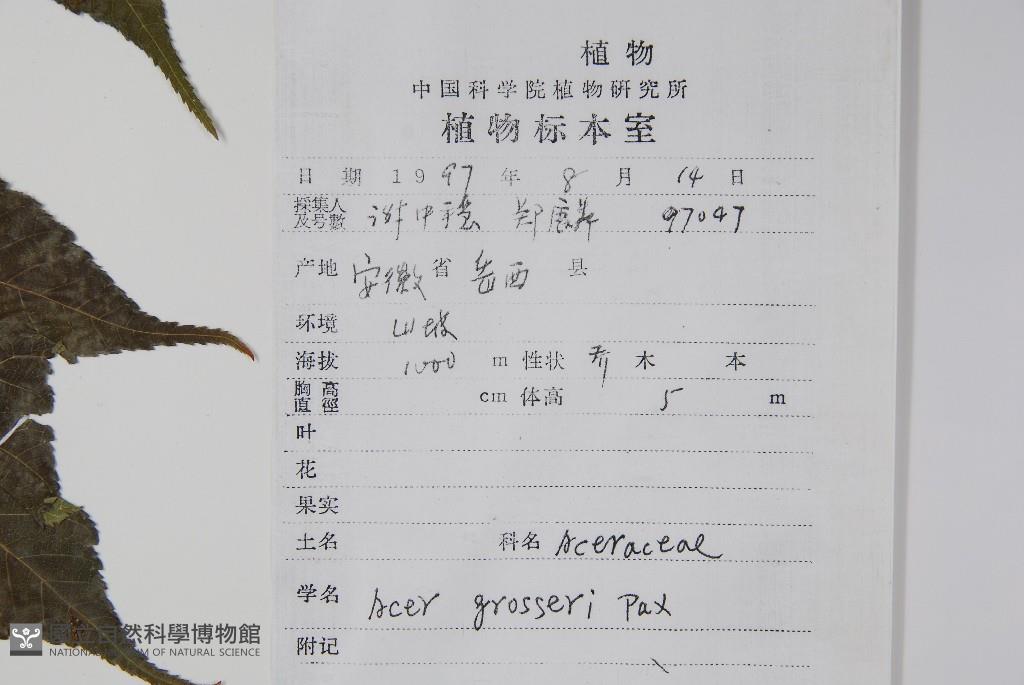 植物
中国科学院植物研究所
植物标本室
日期 1997年 8月 14日
採集人及号數 谢中稳 郑 97047
产地 安徽省 岳西 县
环境 山坡
海拔 1000 m 性状 乔木 本
胸高直徑 cm 体高 5 m
叶
花
果实
土名 科名 Aceraceae
学名 Acer grosseri Pax
附记
國立自然科學博物館
NATIONAL MUSEUM OF NATURAL SCIENCE